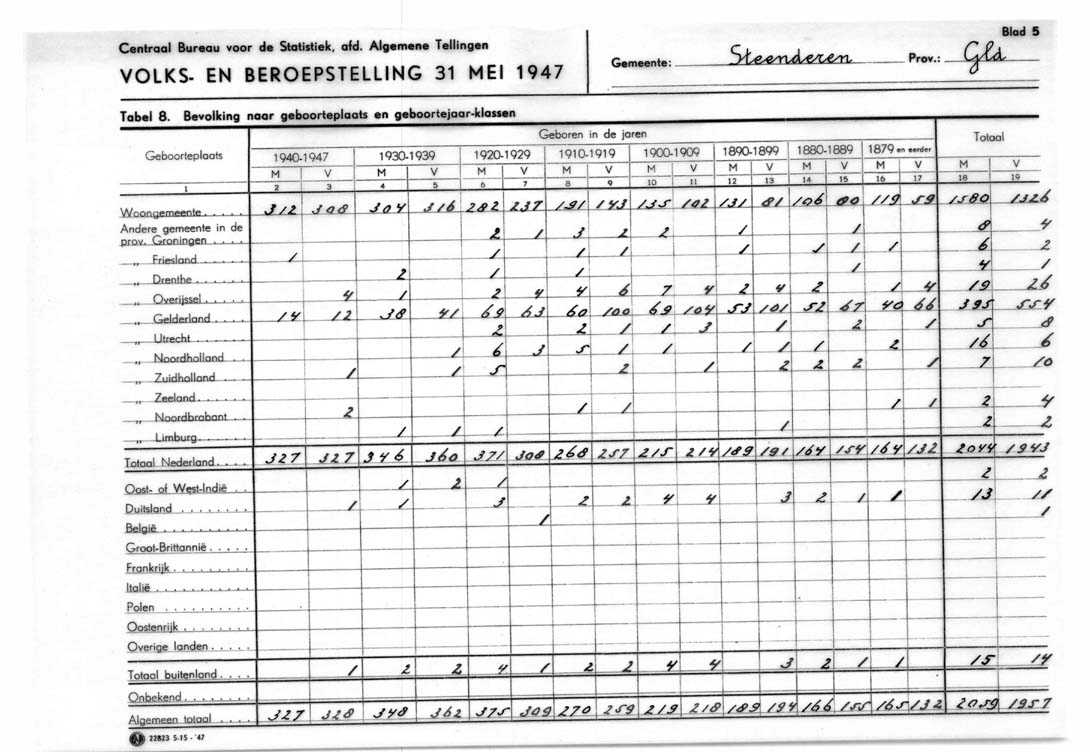 Blad 5
Centraal Bureau voor de Statistiek, afd. Algemene Tellingen
VOLKS- EN BEROEPSTELLING 31 MEI 1947
Gemeente: Steenderen Prov.: Gld
Tabel 8. Bevolking naar geboorteplaats en geboortejaar-klassen
Geboorteplaats Geboren in de jaren Totaal
1940-1947 1930-1939 1920-1929 1910-1919 1900-1909 1890-1899 1880-1889 1879 en eerder
M V M V M V M V M V M V M V M V M V
1 2 3 4 5 6 7 8 9 10 11 12 13 14 15 16 17 18 19
Woongemeente..... 312 308 304 316 282 237 191 143 135 102 131 81 106 80 119 59 1580 1326
Andere gemeente in de
prov. Groningen.... 2 1 3 2 2 1 1 8 4
„ Friesland..... 1 1 1 1 1 1 1 1 6 2
„ Drenthe.... 2 1 1 1 4 1
„ Overijssel..... 4 1 2 4 4 6 7 4 2 4 2 1 4 19 26
„ Gelderland.... 14 12 38 41 69 63 60 100 69 104 53 101 52 67 40 66 395 554
„ Utrecht...... 2 2 1 1 3 1 2 1 5 8
„ Noordholland.. 1 6 3 5 1 1 1 1 1 2 16 6
„ Zuidholland... 1 1 5 2 1 2 2 2 1 7 10
„ Zeeland......
„ Noordbrabant.. 2 1 1 1 1 2 4
„ Limburg...... 1 1 1 1 2 2
Totaal Nederland.... 327 327 346 360 371 308 268 257 215 214 189 191 164 154 164 132 2044 1943
Oost- of West-Indië.. 1 2 1 2 2
Duitsland......... 1 1 3 2 2 4 4 3 2 1 1 13 11
België........... 1 1
Groot-Brittannië.....
Frankrijk..........
Italië............
Polen..........
Oostenrijk........
Overige landen.....
Totaal buitenland.... 1 2 2 4 1 2 2 4 4 3 2 1 1 15 14
Onbekend........
Algemeen totaal.... 327 328 348 362 375 309 270 259 219 218 189 194 166 155 165 132 2059 1957
22823 S-15-'47